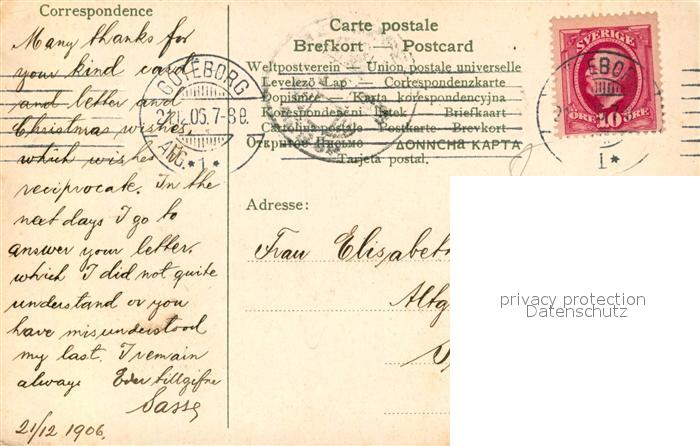 Correspondence
Many thanks for
your kind card
and letter and
Christmas wishes,
which wishes
reciprocate. In the
next days I go to
answer your letter,
which I did not quite
understand or you
have misunderstood
my last. I remain
always Eder tillgifne
Sasse
21/12 1906.
Carte postale
Brefkort — Postcard
Weltpostverein — Union postale universelle
Levelező-Lap — Correspondenzkarte
Dopisnice — Karta korespondencyjna
Korespondenční lístek — Briefkaart
Cartolina postale — Postkarte — Brevkort
Открытое Письмо — ΔΟΠΠCHA KAPTA
Tarjeta postal.
GÖTEBORG
7-8 8.
AVG. * 1 *
SVERIGE
ÖRE 10 ÖRE
EBOR
1 *
Adresse:
Frau Elisabeth
Altg
privacy protection
Datenschutz